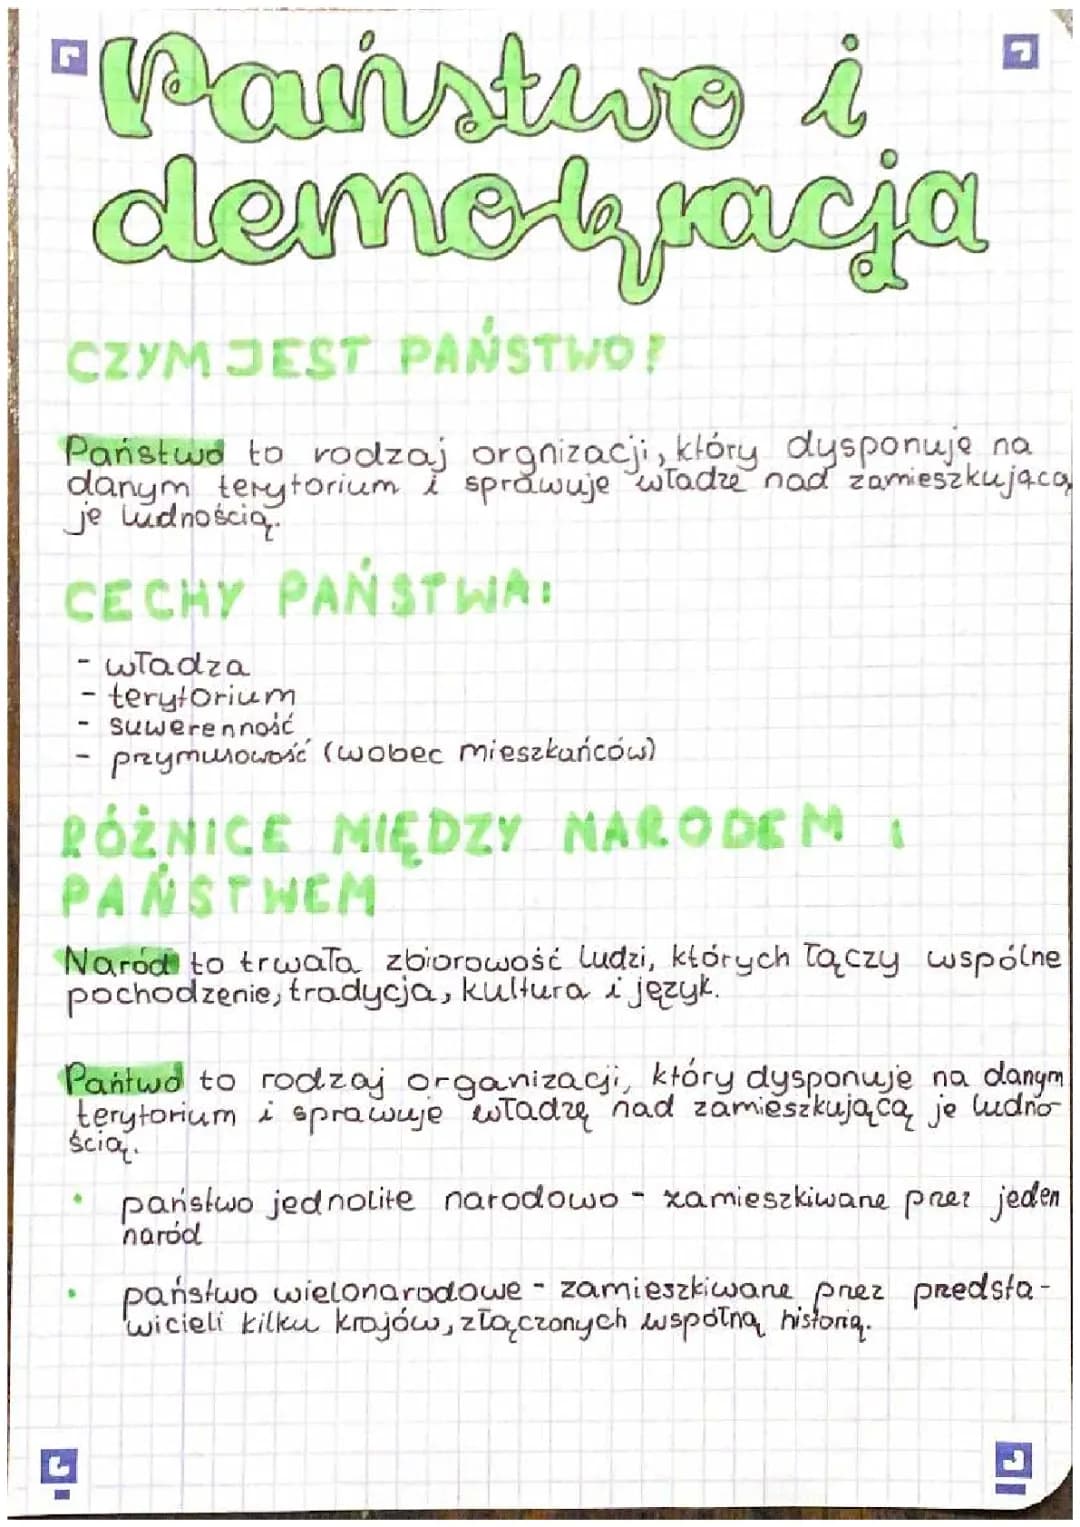 Państwo i
demokracja
CZYM JEST PAŃSTWO?
Państwo to rodzaj orgnizacji, który dysponuję na
danym terytorium i sprawuje władze nad zamieszkującą
je ludnością.
CECHY PAŃSTWA:
- władza
- terytorium
- suwerenność
- przymusowość (wobec mieszkańców)
RÓŻNICE MIĘDZY NARODEM I
PAŃSTWEM
Naród to trwała zbiorowość ludzi, których łączy wspólne
pochodzenie, tradycja, kultura i język.
Pańtwo to rodzaj organizacji, który dysponuję na danym
terytorium i sprawuje władzę nad zamieszkującą je ludno-
ścią.
• państwo jednolite narodowo - zamieszkiwane przez jeden
naród
• państwo wielonarodowe - zamieszkiwane przez przedsta-
wicieli kilku krajów, złączonych wspólną historią.